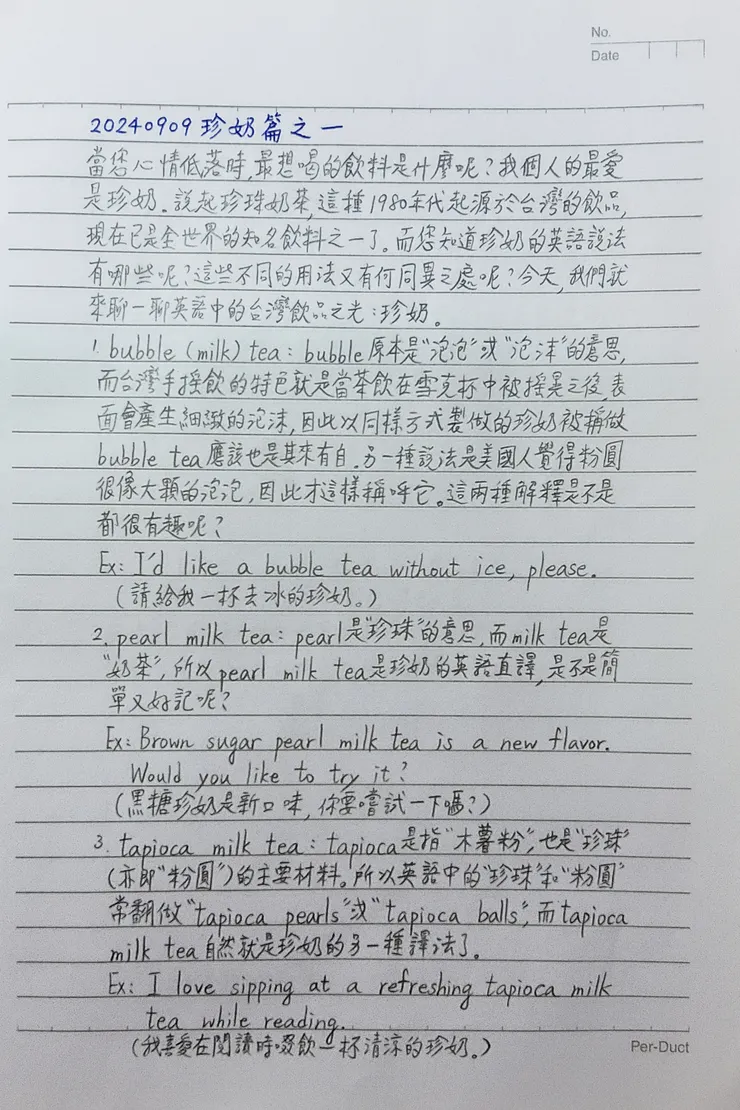 No.
Date
20240909 珍奶篇之一
當您心情低落時,最想喝的飲料是什麼呢?我個人的最愛
是珍奶。說起珍珠奶茶,這種1980年代起源於台灣的飲品,
現在已是全世界的知名飲料之一了。而您知道珍奶的英語說法
有哪些呢?這些不同的用法又有何同異之處呢?今天,我們就
來聊一聊英語中的台灣飲品之光:珍奶。
1. bubble (milk) tea: bubble原本是"泡泡"或"泡沫"的意思,
而台灣手搖飲的特色就是當茶飲在雪克杯中被搖晃之後,表
面會產生細緻的泡沫,因此以同樣方式製做的珍奶被稱做
bubble tea應該也是其來有自。另一種說法是美國人覺得粉圓
很像大顆的泡泡,因此才這樣稱呼它。這兩種解釋是不是
都很有趣呢?
Ex: I'd like a bubble tea without ice, please.
(請給我一杯去冰的珍奶。)
2. pearl milk tea: pearl是"珍珠"的意思,而milk tea是
"奶茶",所以pearl milk tea是珍奶的英語直譯,是不是簡
單又好記呢?
Ex: Brown sugar pearl milk tea is a new flavor.
Would you like to try it?
(黑糖珍奶是新口味,你要嚐試一下嗎?)
3. tapioca milk tea: tapioca是指"木薯粉",也是"珍珠"
(亦即"粉圓")的主要材料。所以英語中的"珍珠"和"粉圓"
常翻做"tapioca pearls"或"tapioca balls",而tapioca
milk tea自然就是珍奶的另一種譯法了。
Ex: I love sipping at a refreshing tapioca milk
tea while reading.
(我喜愛在閱讀時啜飲一杯清涼的珍奶。)
Per-Duct